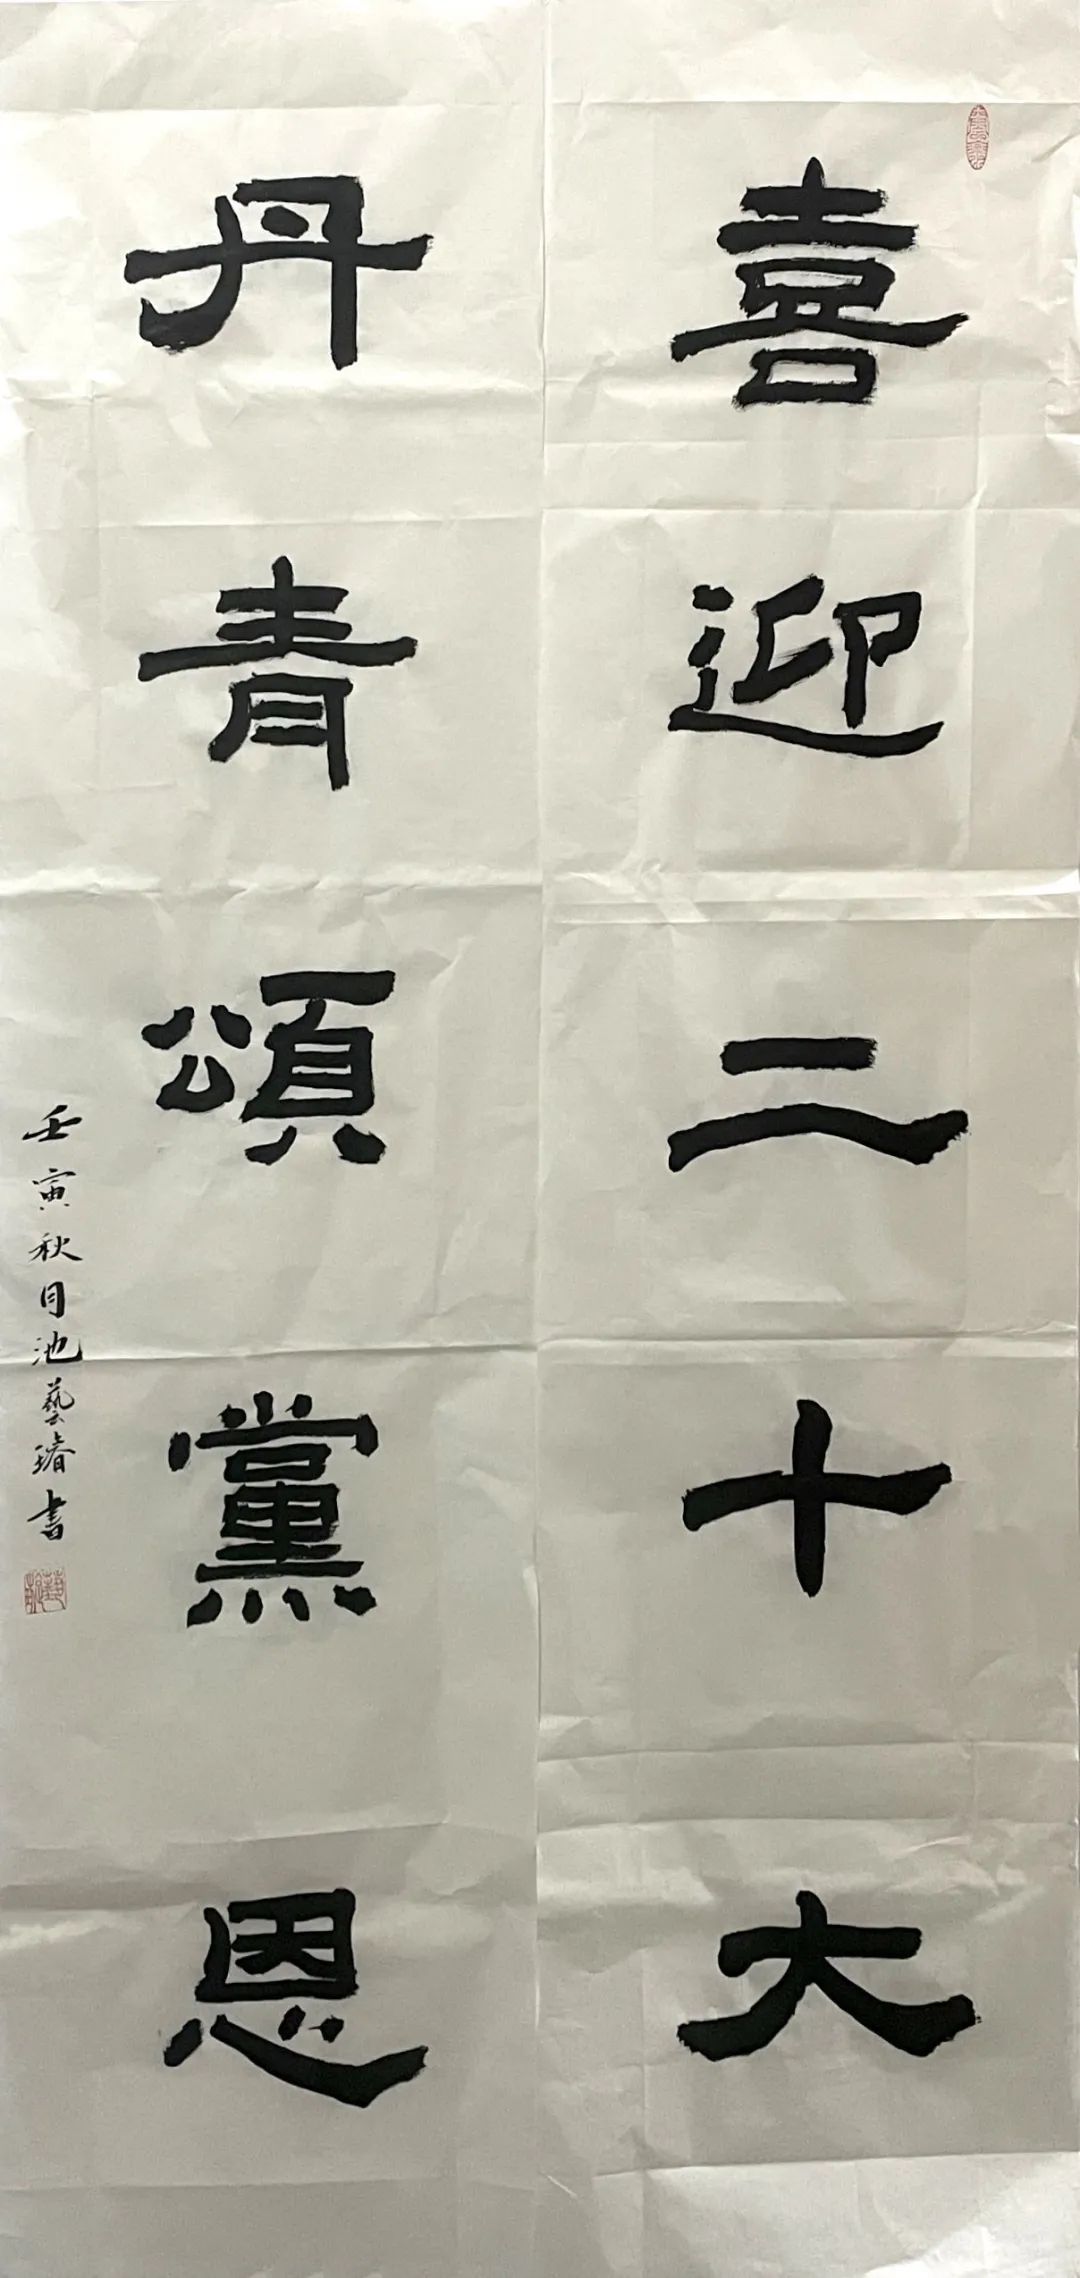 喜迎二十大
丹青頌黨恩
壬寅秋月池藝瑃書